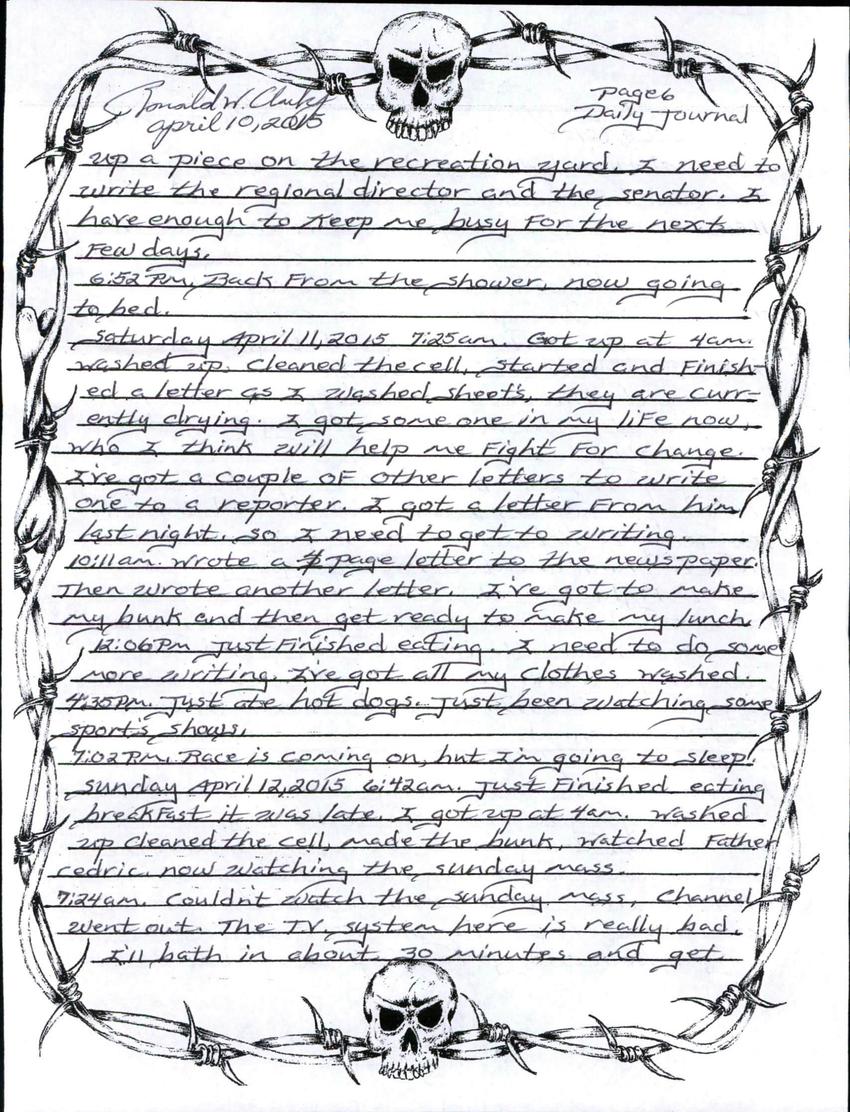 Ronald W. Clark Jr
april 10, 2015
page 6
Daily Journal
up a piece on the recreation yard. I need to
write the regional director and the senator. I
have enough to keep me busy for the next
few days.
6:52 Pm. Back from the shower, now going
to bed.
Saturday April 11, 2015 7:25am. Got up at 4am.
washed up. Cleaned the cell, started and finish-
ed a letter as I washed sheets, they are curr-
ently drying. I got some one in my life now,
who I think will help me fight for change.
I've got a couple of other letters to write
one to a reporter. I got a letter from him
last night. so I need to get to writing.
10:11am. wrote a page letter to the newspaper.
Then wrote another letter. I've got to make
my bunk and then get ready to make my lunch
12:06Pm Just finished eating. I need to do some
more writing. I've got all my clothes washed.
4:35Pm. Just ate hot dogs. Just been watching some
sport's shows.
7:02 P.m. Race is coming on, but I'm going to sleep.
sunday April 12, 2015 6:42am. Just finished eating
breakfast it was late. I got up at 4am. washed
up cleaned the cell, made the bunk, watched Father
cedric. now watching the sunday mass.
7:24am. Couldn't watch the sunday mass, Channel
went out. The T.V. system here is really bad.
I'll bath in about 30 minutes and get